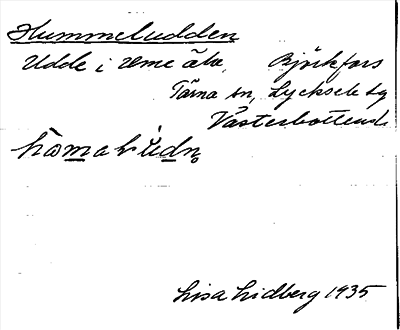 Hummeludden
Udde i Ume älv, Björkfors
Tärna sn, Lycksele lg
Västerbottens
Lisa Lidberg 1935